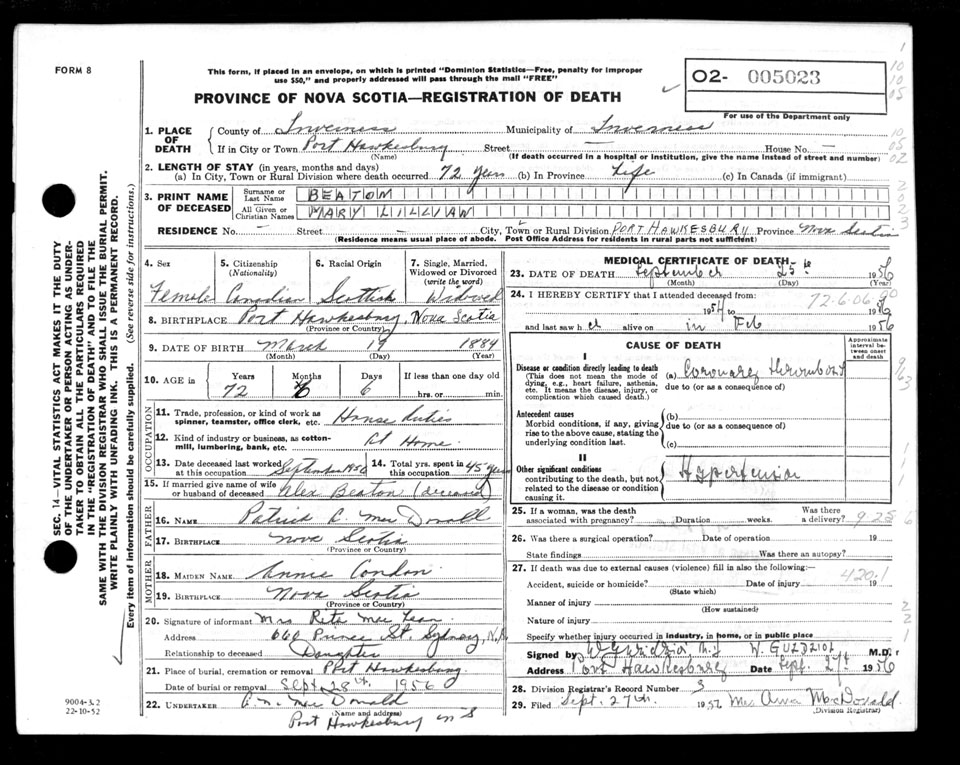 FORM 8
This form, if placed in an envelope, on which is printed "Dominion Statistics—Free, penalty for improper
use $50," and properly addressed will pass through the mail "FREE"
O2- 005023
For use of the Department only
PROVINCE OF NOVA SCOTIA—REGISTRATION OF DEATH
1. PLACE OF DEATH
County of Inverness Municipality of Inverness
If in City or Town Port Hawkesbury Street — House No. —
(Name) (If death occurred in a hospital or institution, give the name instead of street and number)
2. LENGTH OF STAY (in years, months and days)
(a) In City, Town or Rural Division where death occurred 72 years (b) In Province Life (c) In Canada (if immigrant)
3. PRINT NAME OF DECEASED
Surname or Last Name BEATON
All Given or Christian Names MARY LILLIAN
RESIDENCE No. — Street — City, Town or Rural Division PORT HAWKESBURY Province Nova Scotia
(Residence means usual place of abode. Post Office Address for residents in rural parts not sufficient)
4. Sex
Female
5. Citizenship (Nationality)
Canadian
6. Racial Origin
Scottish
7. Single, Married, Widowed or Divorced (write the word)
Widowed
8. BIRTHPLACE Port Hawkesbury, Nova Scotia
(Province or Country)
9. DATE OF BIRTH March 19 1884
(Month) (Day) (Year)
10. AGE in Years Months Days If less than one day old
72 6 6 hrs. or min.
OCCUPATION
11. Trade, profession or kind of work as
spinner, teamster, office clerk, etc. House duties
12. Kind of industry or business, as cotton-
mill, lumbering, bank, etc. At Home.
13. Date deceased last worked
at this occupation September 1956
14. Total yrs. spent in
this occupation 45 years
15. If married give name of wife
or husband of deceased Alex Beaton (deceased)
FATHER
16. NAME Patrick C. MacDonald
17. BIRTHPLACE Nova Scotia
(Province or Country)
MOTHER
18. MAIDEN NAME Annie Condon
19. BIRTHPLACE Nova Scotia
(Province or Country)
20. Signature of informant Mrs Rita MacLean
Address Prince St. Sydney, N.S.
Relationship to deceased Daughter
21. Place of burial, cremation or removal Port Hawkesbury
Date of burial or removal Sept. 28th, 1956
22. UNDERTAKER MacDonald
(Name and address)
Port Hawkesbury N S
MEDICAL CERTIFICATE OF DEATH
23. DATE OF DEATH September 25th 1956
(Month) (Day) (Year)
24. I HEREBY CERTIFY that I attended deceased from:
1954 to 1956
72-6-06
and last saw her alive on in Feb 1956
CAUSE OF DEATH
Approximate interval between onset and death
I
Disease or condition directly leading to death
(This does not mean the mode of dying, e.g., heart failure, asthenia, etc. It means the disease, injury, or complication which caused death.)
(a) Coronary Thrombosis
due to (or as a consequence of)
Antecedent causes
Morbid conditions, if any, giving rise to the above cause, stating the underlying condition last.
(b)
due to (or as a consequence of)
(c)
II
Other significant conditions
contributing to the death, but not related to the disease or condition causing it.
Hypertension
25. If a woman, was the death
associated with pregnancy? Duration weeks. Was there a delivery? 925
26. Was there a surgical operation? Date of operation 19
State findings Was there an autopsy?
27. If death was due to external causes (violence) fill in also the following:—
420.1
Accident, suicide or homicide? Date of injury 19
(State which)
Manner of injury
(How sustained)
Nature of injury
Specify whether injury occurred in industry, in home, or in public place
Signed by W. GUZDZIOL M.D.
Address Port Hawkesbury Date Sept. 27th 1956
28. Division Registrar's Record Number 3
29. Filed Sept. 27th. 1956 MacDonald
(Division Registrar)
SEC. 14—VITAL STATISTICS ACT MAKES IT THE DUTY
OF THE UNDERTAKER OR PERSON ACTING AS UNDER-
TAKER TO OBTAIN ALL THE PARTICULARS REQUIRED
IN THE "REGISTRATION OF DEATH" AND TO FILE THE
SAME WITH THE DIVISION REGISTRAR WHO SHALL ISSUE THE BURIAL PERMIT.
WRITE PLAINLY WITH UNFADING INK. THIS IS A PERMANENT RECORD.
Every item of information should be carefully supplied. (See reverse side for instructions.)
9004-3.2
22-10-52